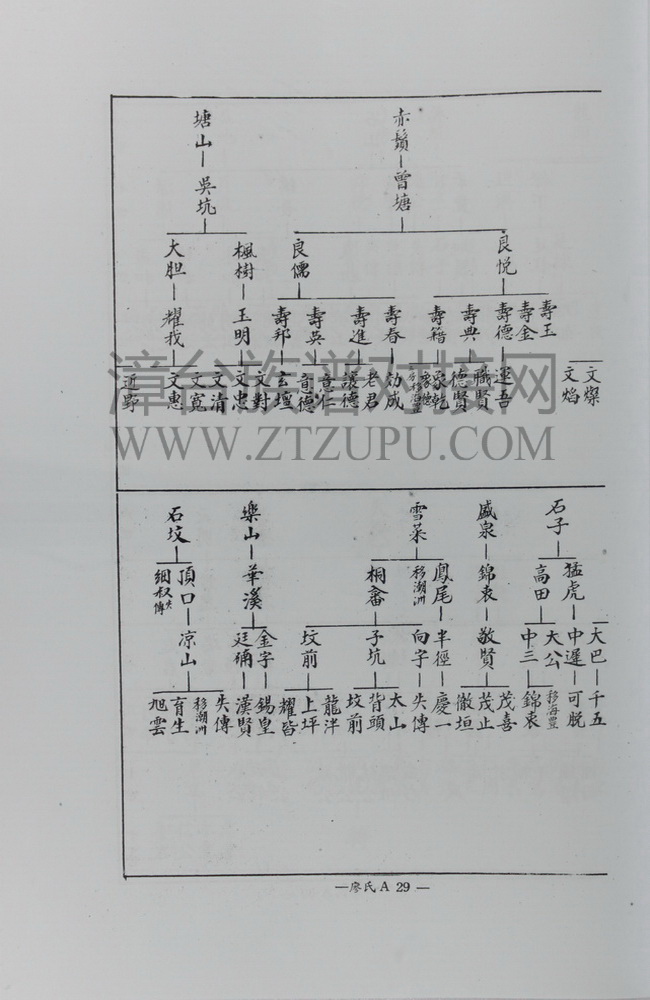 赤鬚
曾塘
良悅
壽玉
壽金
壽德
壽典
壽籍
良儒
壽春
壽進
壽英
壽邦
塘山
吳坑
楓樹
玉明
大胆
耀我
文燦
文焰
運吾
職賢
德賢
象乾
象德
効成
老君
讓德
意仁
意德
玄壇
文對
文忠
文清
文寬
文惠
近野
漳台族谱对接网
WWW.ZTZUPU.COM
石子
猛虎
高田
大巴
千五
中遲
可脱
大公
移海豐
中三
錦衷
盛泉
錦衷
敬賢
茂喜
茂止
徹垣
雪菜
移潮洲
鳳尾
半徑
慶一
向字
失傳
桐畬
子坑
太山
背頭
坟前
坟前
龍津
上坪
耀皆
樂山
華溪
金字
錫皇
廷碖
漢賢
石坟
頂口
細叔失傳
凉山
失傳
移潮洲
育生
旭雲
—廖氏 A 29 —